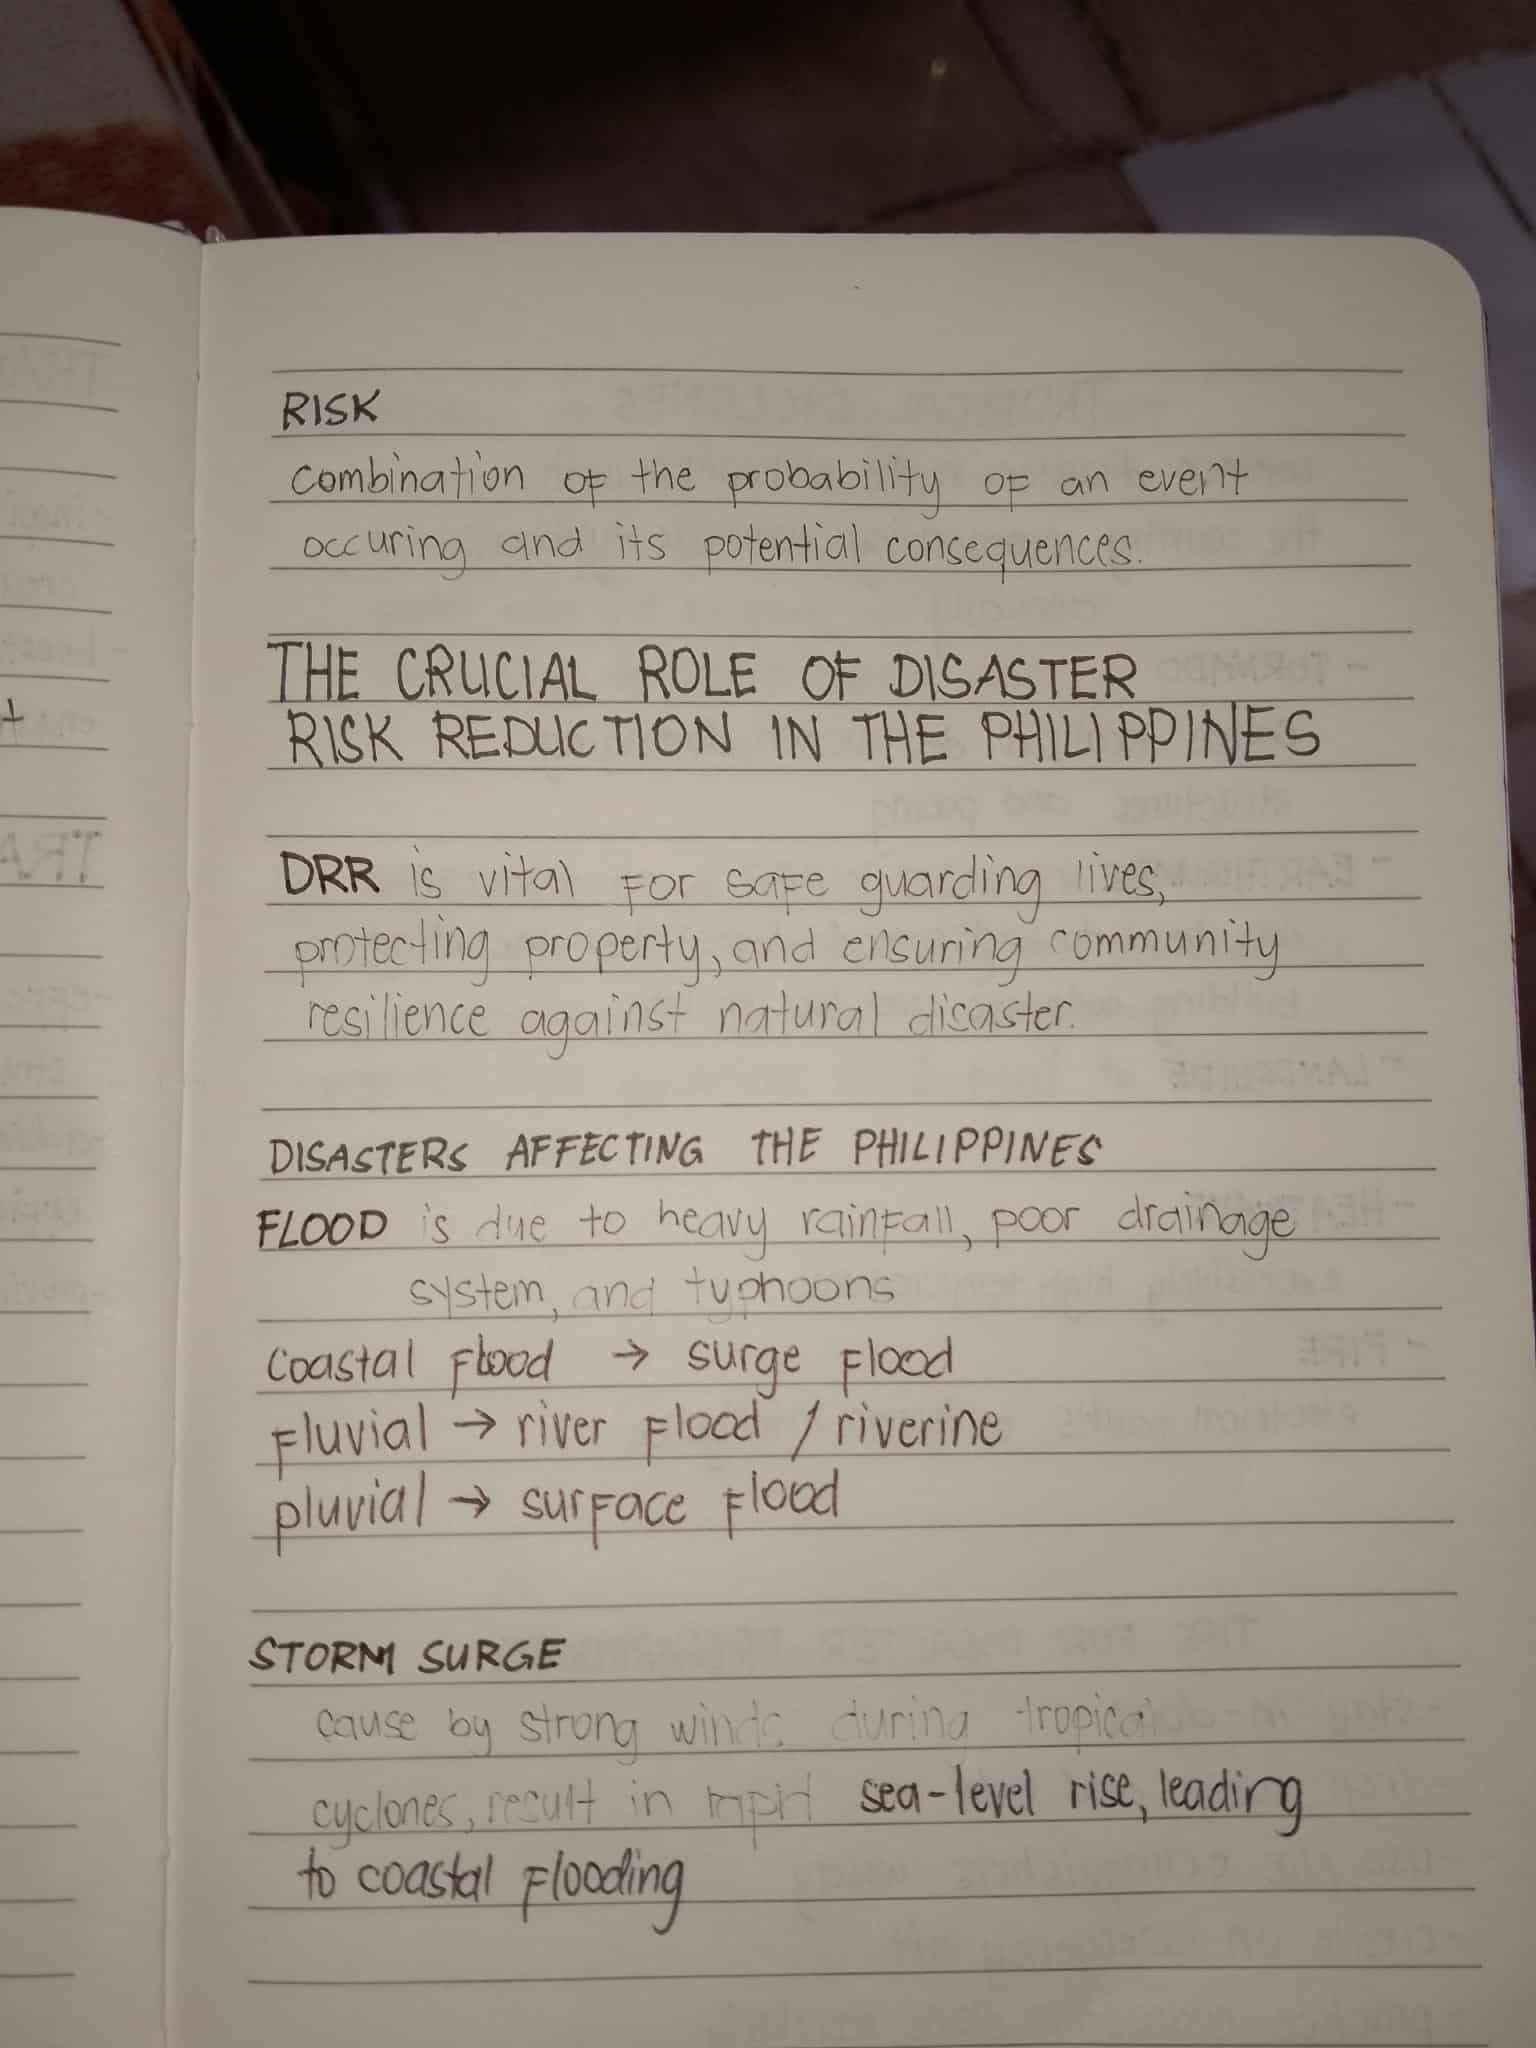 RISK
combination of the probability of an event
occuring and its potential consequences.
THE CRUCIAL ROLE OF DISASTER
RISK REDUCTION IN THE PHILIPPINES
DRR is vital for safe guarding lives,
protecting property, and ensuring community
resilience against natural disaster.
DISASTERS AFFECTING THE PHILIPPINES
FLOOD is due to heavy rainfall, poor drainage
system, and typhoons
coastal flood → surge flood
fluvial → river flood / riverine
pluvial → surface flood
STORM SURGE
cause by strong winds during tropical
cyclones, result in rapid sea-level rise, leading
to coastal flooding